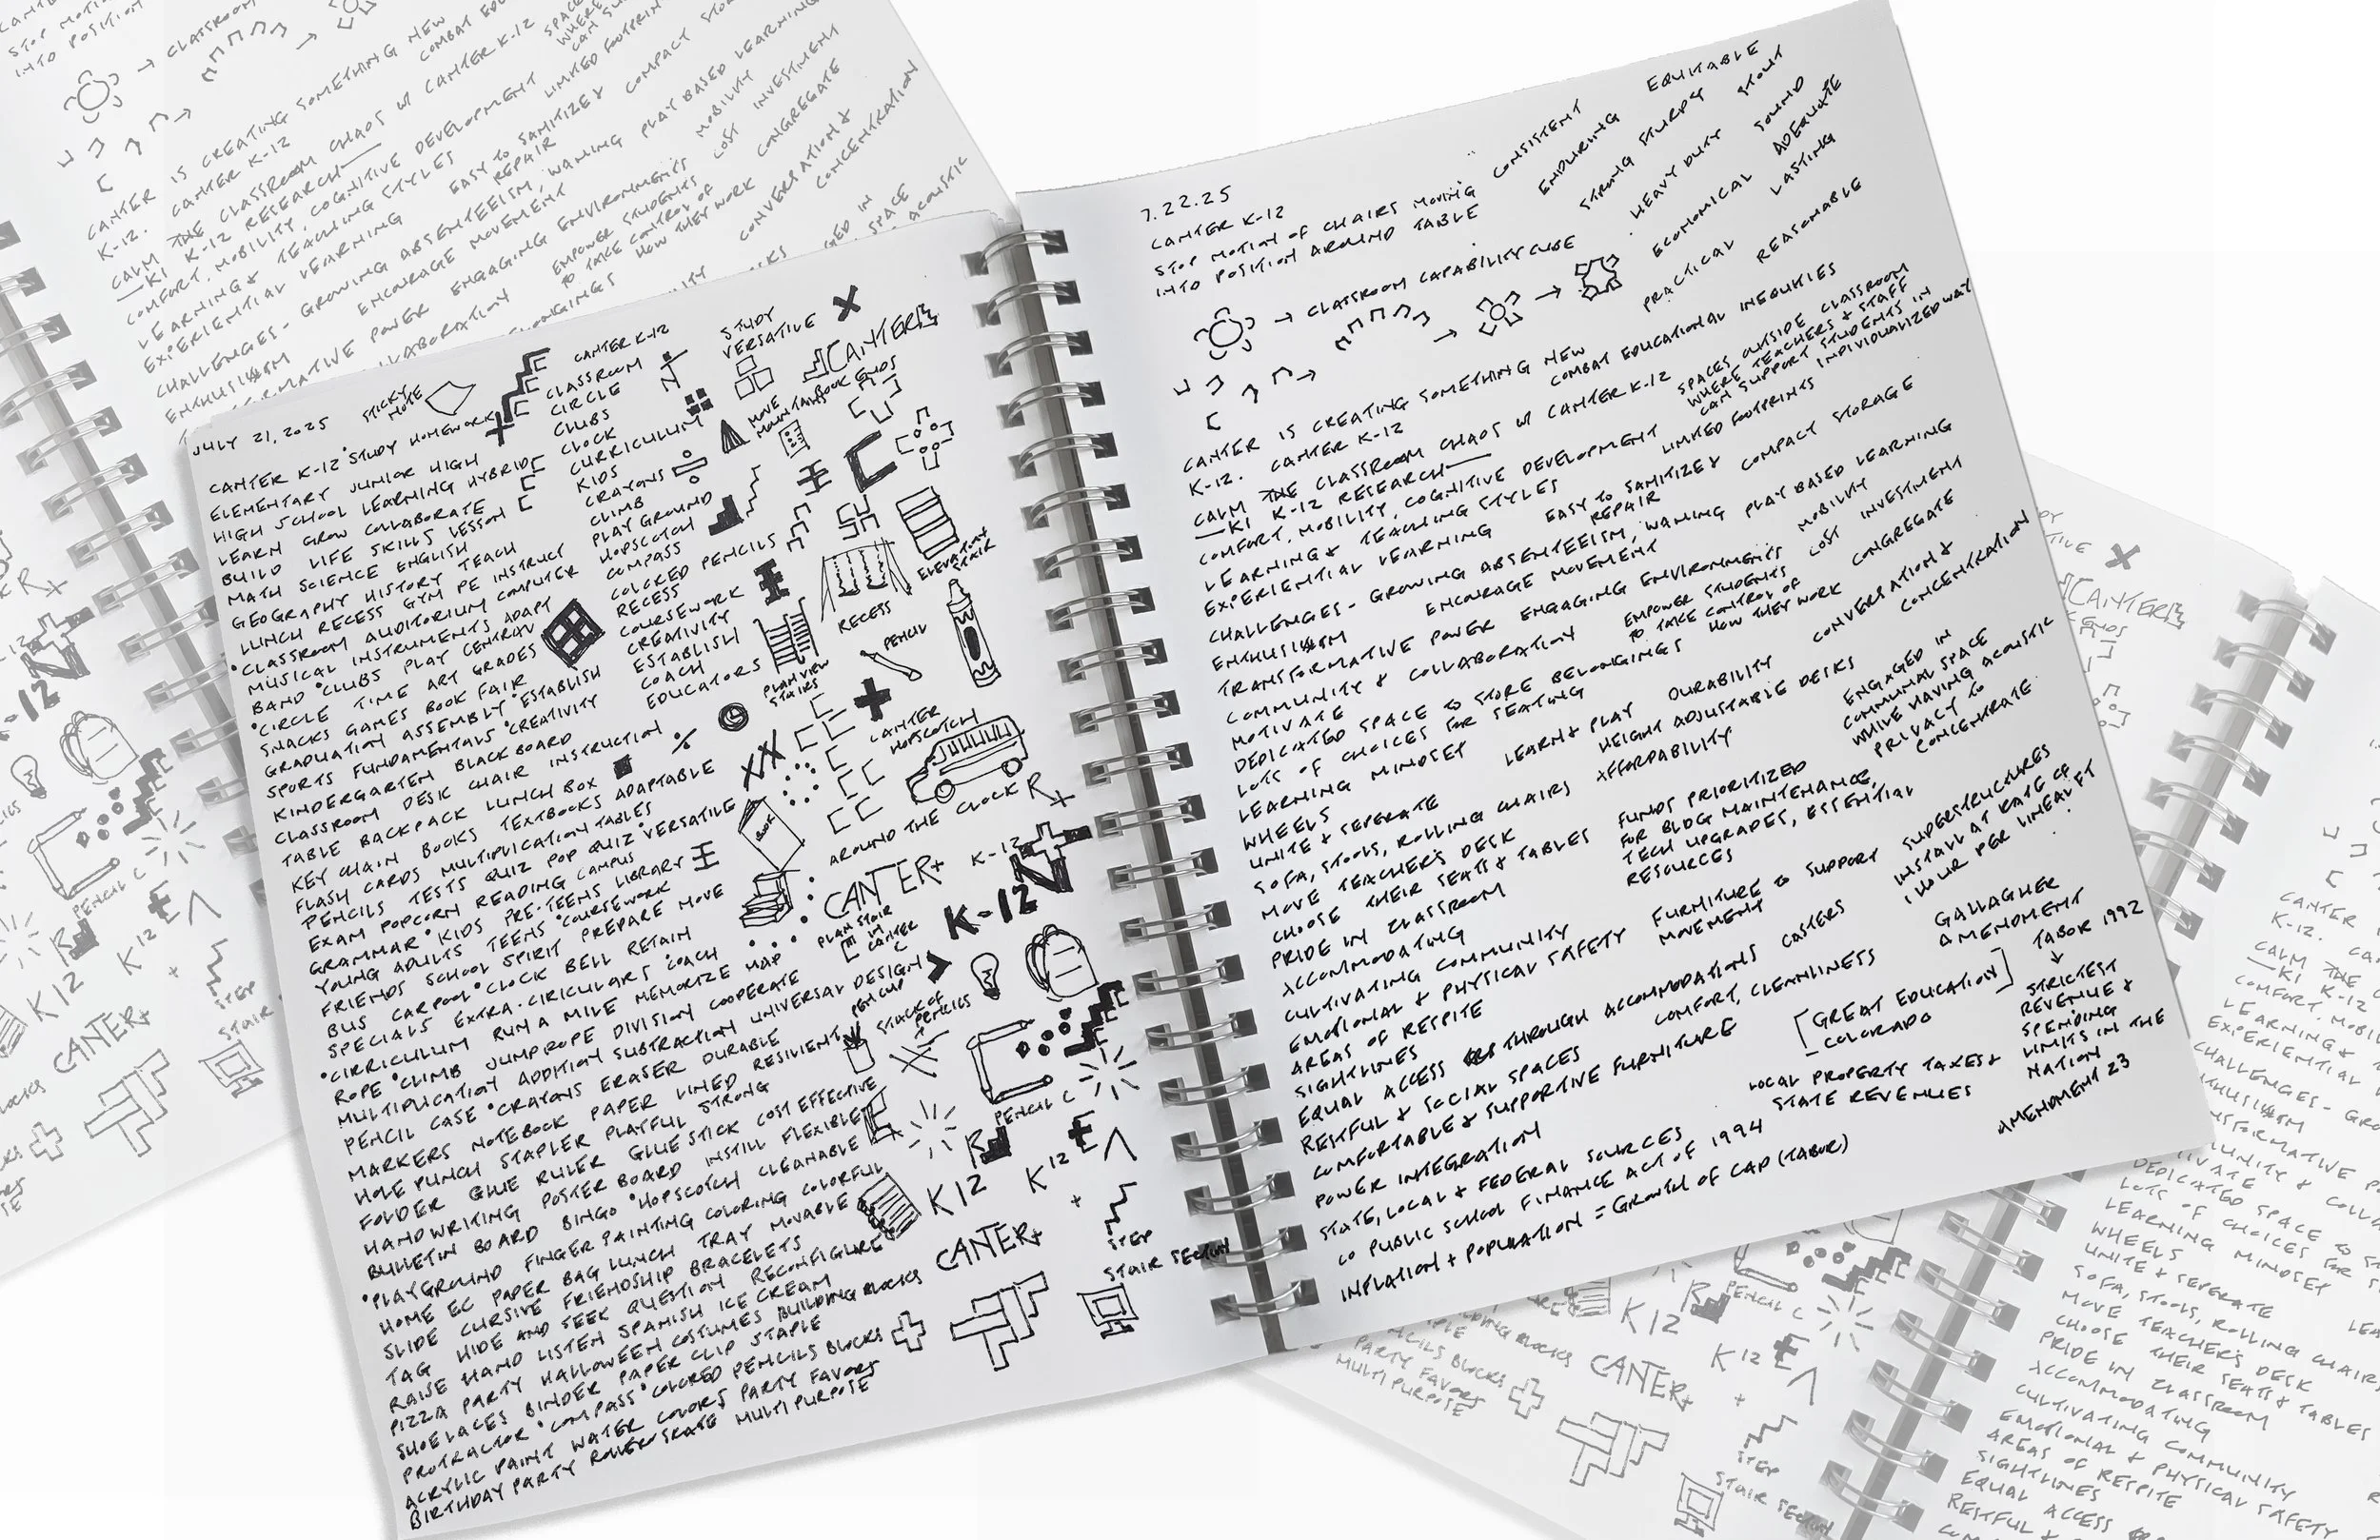 JULY 21, 2025
STICKY NOTE
CANTER K-12 "STUDY HOMEWORK
ELEMENTARY JUNIOR HIGH
HIGH SCHOOL LEARNING HYBRID
LEARN GROW COLLABORATE
BUILD LIFE SKILLS LESSON
MATH SCIENCE ENGLISH
GEOGRAPHY HISTORY TEACH
LUNCH RECESS GYM PE INSTRUCT
"CLASSROOM AUDITORIUM COMPUTER
MUSICAL INSTRUMENTS ADAPT
BAND "CLUBS PLAY CENTRAL
"CIRCLE TIME ART GRADES
SNACKS GAMES BOOK FAIR
GRADUATION ASSEMBLY "ESTABLISH
SPORTS FUNDAMENTALS "CREATIVITY
KINDERGARTEN BLACK BOARD
CLASSROOM DESK CHAIR INSTRUCTION
TABLE BACKPACK LUNCH BOX
KEY CHAIN BOOKS TEXTBOOKS ADAPTABLE
FLASH CARDS MULTIPLICATION TABLES
PENCILS TESTS QUIZ POP QUIZ "VERSATILE
EXAM POPCORN READING CAMPUS
GRAMMAR "KIDS PRE-TEENS LIBRARY
YOUNG ADULTS TEENS "COURSEWORK
FRIENDS SCHOOL SPIRIT PREPARE MOVE
BUS CARPOOL "CLOCK BELL RETAIN
SPECIALS EXTRA-CIRICULARS COACH
"CIRRICULUM RUN A MILE MEMORIZE MAP
ROPE "CLIMB JUMPROPE DIVISION COOPERATE
MULTIPLICATION ADDITION SUBTRACTION UNIVERSAL DESIGN
PENCIL CASE "CRAYONS ERASER DURABLE
MARKERS NOTEBOOK PAPER LINED RESILIENT
HOLE PUNCH STAPLER PLAYFUL STRONG
FOLDER GLUE RULER GLUESTICK COST EFFECTIVE
HANDWRITING POSTER BOARD INSTILL FLEXIBLE
BULLETIN BOARD BINGO "HOPSCOTCH CLEANABLE
"PLAYGROUND FINGER PAINTING COLORING COLORFUL
HOME EC PAPER BAG LUNCH TRAY MOVABLE
SLIDE CURSIVE FRIENDSHIP BRACELETS
TAG HIDE AND SEEK QUESTION RECONFIGURE
RAISE HAND LISTEN SPANISH ICE CREAM
PIZZA PARTY HALLOWEEN COSTUMES BUILDING BLOCKS
SHOELACES BINDER PAPER CLIP STAPLE
PROTRACTOR "COMPASS "COLORED PENCILS BLOCKS
ACRYLIC PAINT WATER COLORS PARTY FAVORS
BIRTHDAY PARTY ROLLER SKATE MULTI PURPOSE
CANTER K-12
CLASSROOM
CIRCLE
CLUBS
CLOCK
CURRICULUM
KIDS
CRAYONS
CLIMB
PLAY GROUND
HOPSCOTCH
COMPASS
COLORED PENCILS
RECESS
COURSEWORK
CREATIVITY
ESTABLISH
COACH
EDUCATORS
STUDY
VERSATILE
CANTER
MOVE
MOUNTAINS
BOOK ENDS
ELEVATION
STAIR
RECESS
PENCIL
PLAN VIEW
STAIRS
CANTER
HOPSCOTCH
BOOK
AROUND THE CLOCK
K-12
CANTER+
K-12
PLAN STAIR
IN
CANTER
C
PEN CUP
STACK OF
PENCILS
PENCIL C
K12
K12
CANTER+
+
STEP
STAIR SECTION
7.22.25
CANTER K-12
STOP MOTION OF CHAIRS MOVING
INTO POSITION AROUND TABLE
CONSISTENT
EQUITABLE
ENDURING
STRONG STURDY STOUT
HEAVY DUTY SOUND
ECONOMICAL ADEQUATE
PRACTICAL LASTING
REASONABLE
→ CLASSROOM CAPABILITY CUBE
CANTER IS CREATING SOMETHING NEW
K-12. CANTER K-12
COMBAT EDUCATIONAL INEQUITIES
CALM THE CLASSROOM CHAOS W/ CANTER K-12
—KI K-12 RESEARCH—
SPACES OUTSIDE CLASSROOM
WHERE TEACHERS & STAFF
CAN SUPPORT STUDENTS IN
INDIVIDUALIZED WAY
COMFORT, MOBILITY, COGNITIVE DEVELOPMENT
LIMITED FOOTPRINTS
LEARNING & TEACHING STYLES
EXPERIENTIAL LEARNING
EASY TO SANITIZE &
REPAIR
COMPACT STORAGE
CHALLENGES - GROWING ABSENTEEISM, WANING PLAY BASED LEARNING
ENTHUSIASM ENCOURAGE MOVEMENT
TRANSFORMATIVE POWER ENGAGING ENVIRONMENTS
MOBILITY
COST INVESTMENT
COMMUNITY & COLLABORATION
EMPOWER STUDENTS
TO TAKE CONTROL OF
HOW THEY WORK
CONGREGATE
MOTIVATE
DEDICATED SPACE TO STORE BELONGINGS
CONVERSATION &
CONCENTRATION
LOTS OF CHOICES FOR SEATING
LEARNING MINDSET LEARN & PLAY DURABILITY
WHEELS
HEIGHT ADJUSTABLE DESKS
UNITE & SEPERATE
SOFA, STOOLS, ROLLING CHAIRS AFFORDABILITY
ENGAGED IN
COMMUNAL SPACE
WHILE HAVING ACOUSTIC
PRIVACY TO
CONCENTRATE
MOVE TEACHER'S DESK
CHOOSE THEIR SEATS & TABLES
PRIDE IN CLASSROOM
FUNDS PRIORITIZED
FOR BLDG MAINTENANCE,
TECH UPGRADES, ESSENTIAL
RESOURCES
ACCOMMODATING
CULTIVATING COMMUNITY
EMOTIONAL & PHYSICAL SAFETY
FURNITURE TO SUPPORT
MOVEMENT
SUPERSTRUCTURES
INSTALL AT RATE OF
1 HOUR PER LINEAL FT
AREAS OF RESPITE
SIGHTLINES
EQUAL ACCESS THROUGH ACCOMMODATIONS CASTERS
RESTFUL & SOCIAL SPACES COMFORT, CLEANLINESS
COMFORTABLE & SUPPORTIVE FURNITURE
POWER INTEGRATION
GALLAGHER
AMENDMENT
TABOR 1992
[GREAT EDUCATION]
COLORADO
STRICTEST
REVENUE &
SPENDING
LIMITS IN THE
NATION
LOCAL PROPERTY TAXES &
STATE REVENUES
AMENDMENT 23
STATE, LOCAL & FEDERAL SOURCES
CO PUBLIC SCHOOL FINANCE ACT OF 1994
INFLATION + POPULATION = GROWTH OF CAP (TABOR)